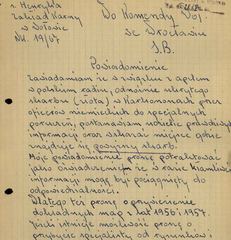 r. Henryka
Zakład Karny
w Wołowie
Nr. 19/67
Do Komendy Woj.
we Wrocławiu
S.B.
Powiadomienie
Zawiadamiam że w związku z apelem
w polskim radiu, odnośnie ukrytego
skarbu (złota) w Karkonoszach przez
oficerów niemieckich do specjalnych
poruczeń, postanawiam udzielić prawdziwych
informacji oraz wskazać miejsce gdzie
znajduje się powyższy skarb.
Moje powiadomienie proszę potraktować
jako oświadczenie że w razie kłamliwej
informacji mogę być pociągnięty do
odpowiedzialności.
Dlatego też proszę o przywiezienie
dokładnych map z lat 1956 i 1957.
Jeśli istnieje możliwość proszę o
przybycie specjalisty od rysunków i